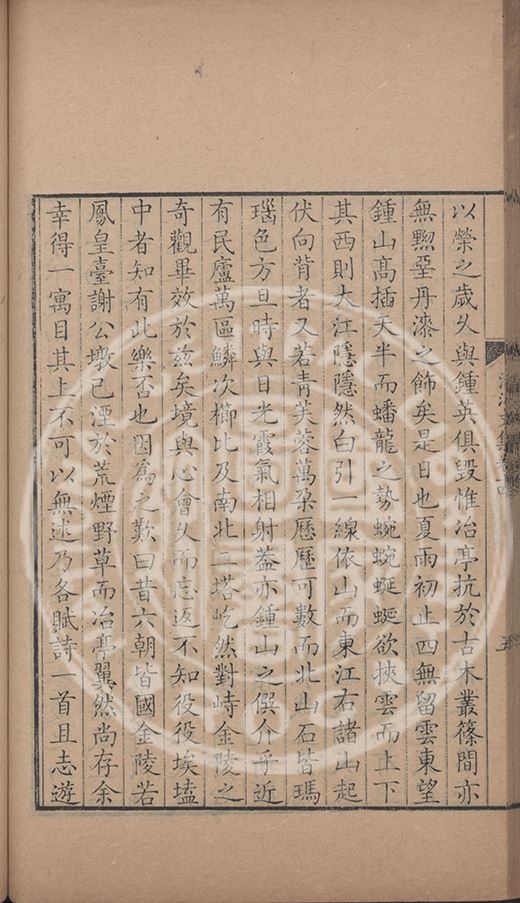 以榮之歲久與鍾英俱毀惟冶亭抗於古木叢篠間亦
無黝堊丹漆之飾矣是日也夏雨初止四無留雲東望
鍾山髙插天半而蟠龍之勢蜿蜿蜒蜒欲挾雲而上下
其西則大江隱隱然白引一線依山而東江右諸山起
伏向背者又若青芙蓉萬朶歷歷可數而北山石皆瑪
瑙色方旦時與日光霞氣相射葢亦鍾山之僎介乎近
有民廬萬區鱗次櫛比及南北二塔屹然對峙金陵之
奇觀畢效於兹矣境與心會久而忘返不知役役埃𡏖
中者知有此樂否也因為之歎曰昔六朝皆國金陵若
鳳皇臺謝公墩已湮於荒煙野草而冶亭翼然尚存余
幸得一寓目其上不可以無述乃各賦詩一首且志遊